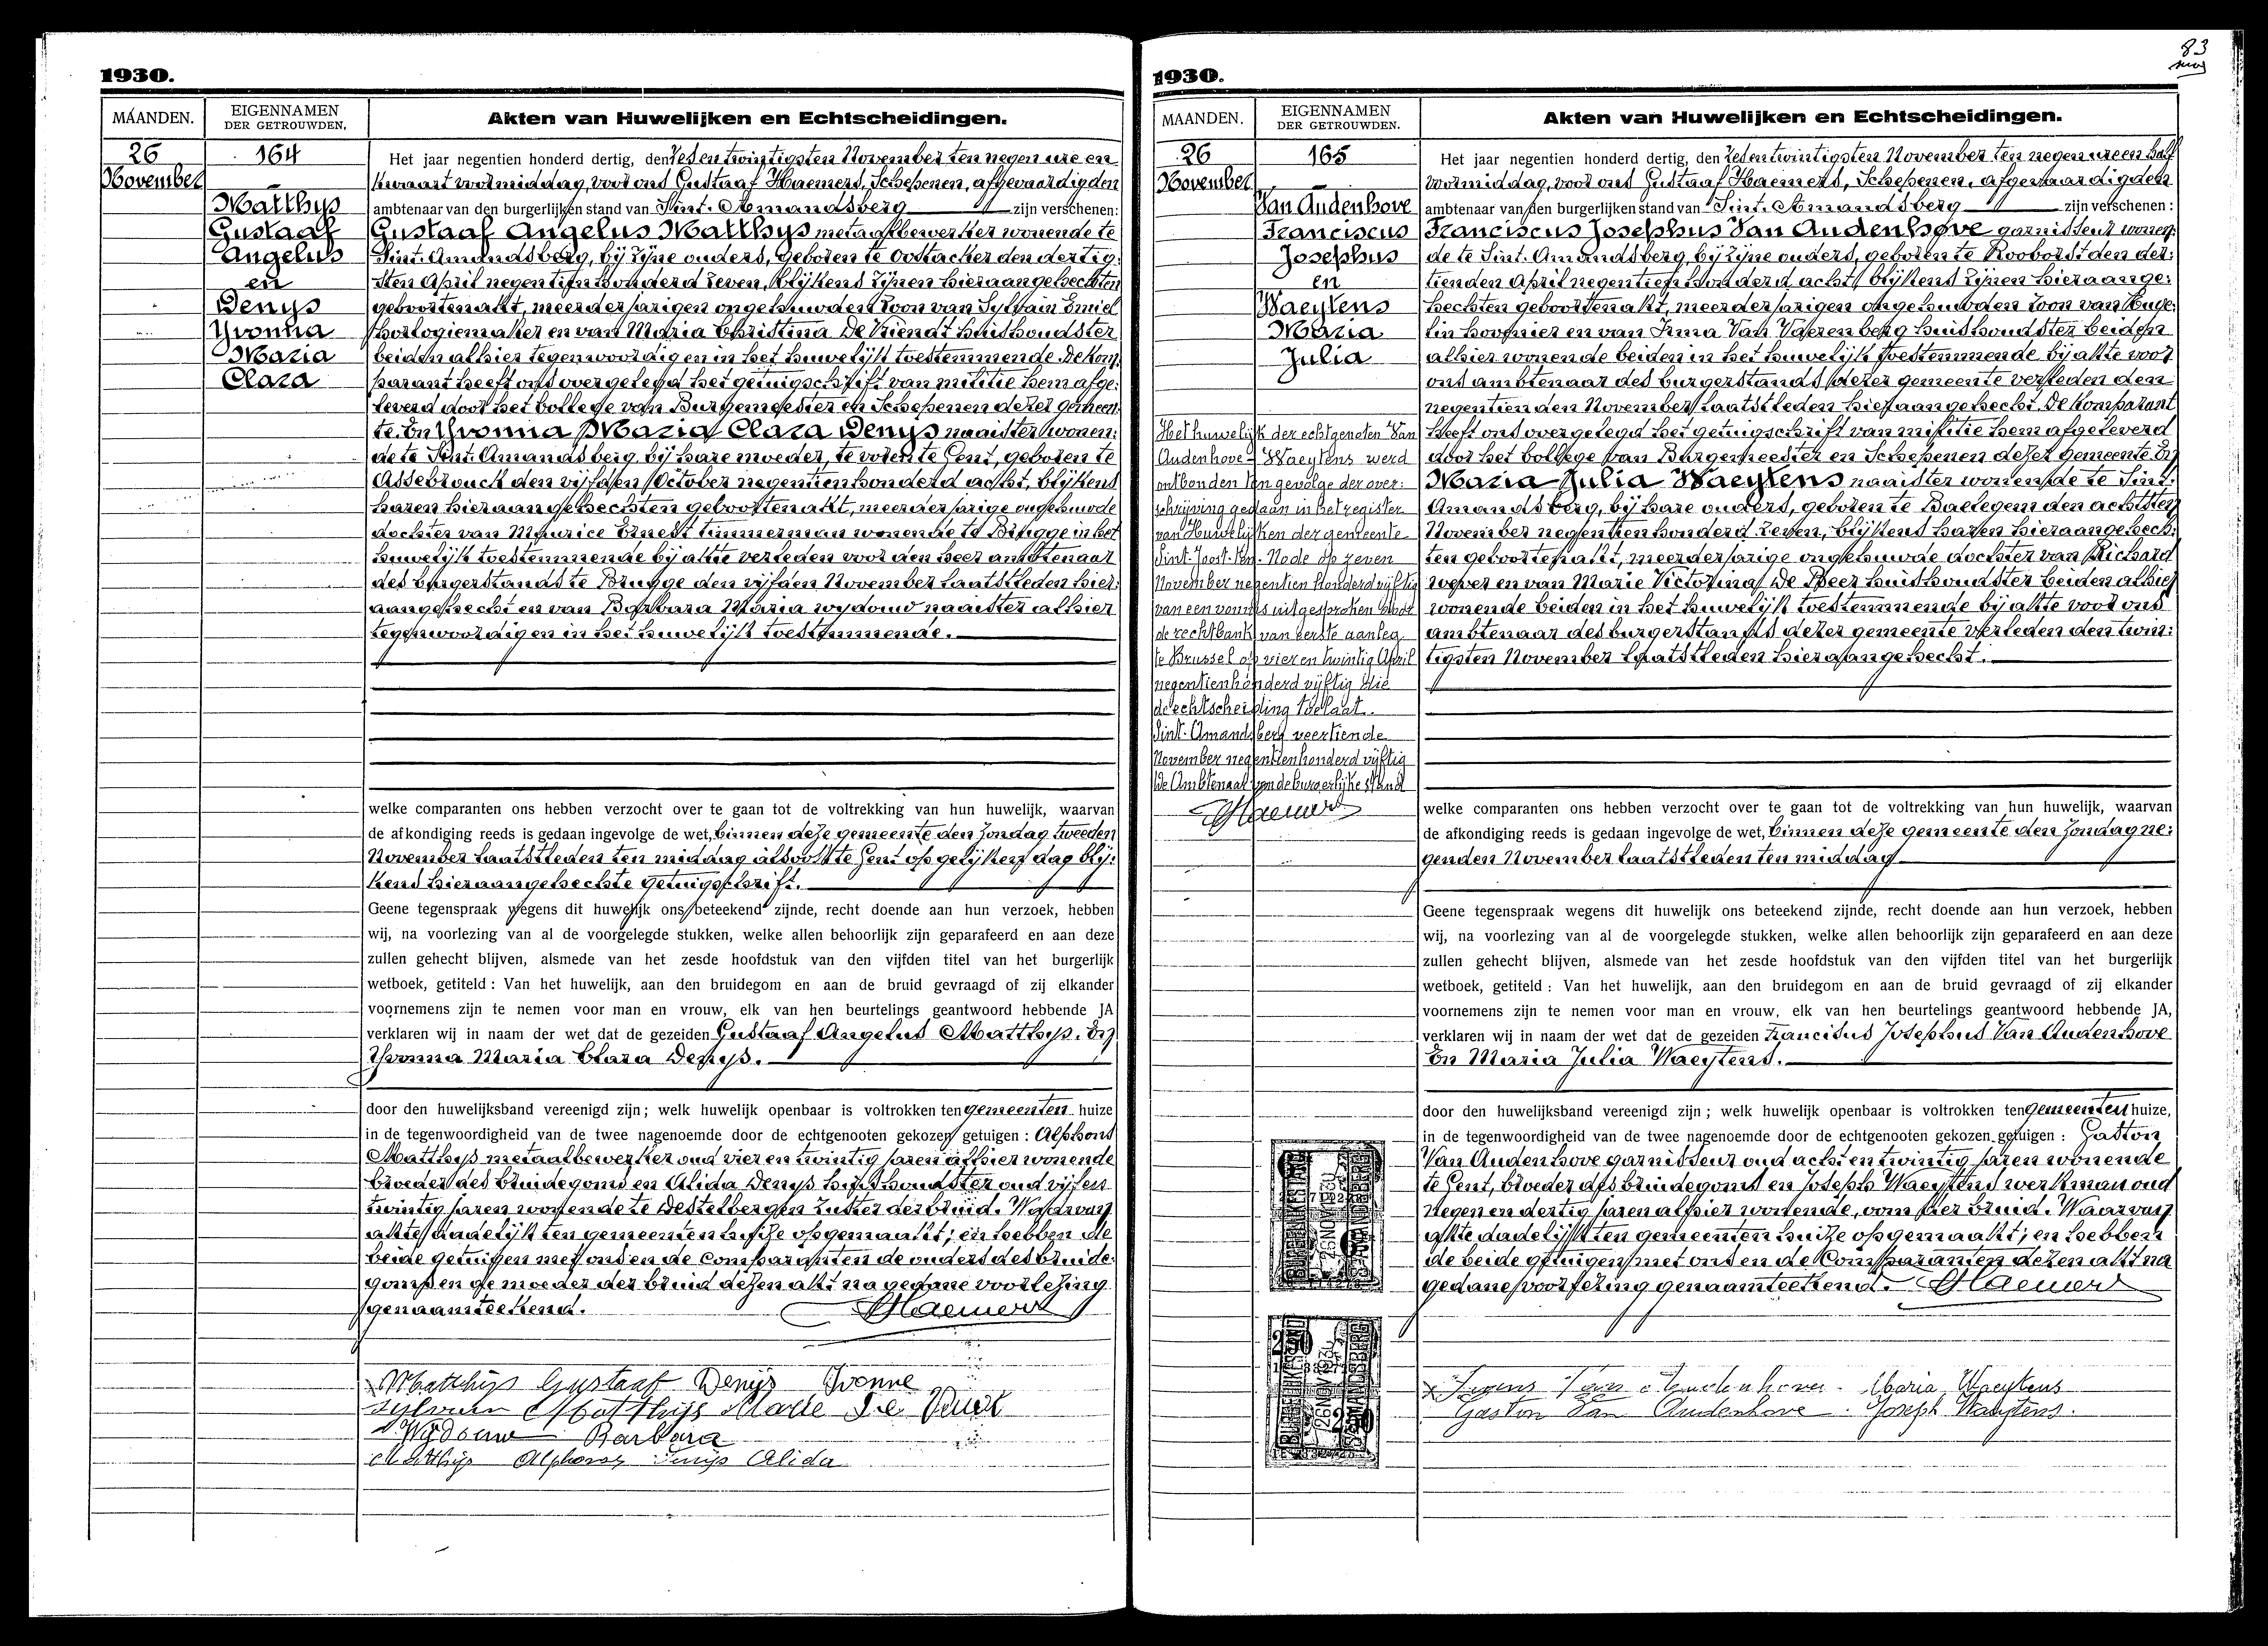 1930.
MAANDEN.
EIGENNAMEN
DER GETROUWDEN.
Akten van Huwelijken en Echtscheidingen.
26
November
164
Matthys
Gustaaf
Angelus
en
Denys
Yvonna
Maria
Clara
Het jaar negentien honderd dertig, den zesentwintigsten November ten negen ure en
kwaart voormiddag, voor ons Gustaaf Haemers, Schepenen, afgevaardigden
ambtenaar van den burgerlijken stand van Sint-Amandsberg zijn verschenen:
Gustaaf Angelus Matthys metaalbewerker wonende te
Sint-Amandsberg, bij zijne ouders, geboren te Oostacker den dertig-
sten April negentienhonderd zeven, blijkens zijnen hieraangehechten
geboortenakt, meerderjarigen ongehuwden zoon van Sylvain Emiel
horlogiemaker en van Maria Christina De Vriendt huishoudster
beiden alhier tegenwoordig en in het huwelijk toestemmende. De Kom-
parant heeft ons overgelegd het getuigschrift van militie hem afge-
leverd door het Collège van Burgemeester en Schepenen dezer gemeen-
te. En Yvonna Maria Clara Denys naaister wonen-
de te Sint-Amandsberg, bij hare moeder, te voren te Gent, geboren te
Assebrouck den vijfden October negentienhonderd acht, blijkens
haren hieraangehechten geboortenakt, meerderjarige ongehuwde
dochter van Maurice Ernest timmerman wonende te Brugge in het
huwelijk toestemmende bij akte verleden voor den heer ambtenaar
des burgerstands te Brugge den vijfden November laatstleden hier-
aangehecht en van Barbara Maria Wydouw naaister alhier
tegenwoordig en in het huwelijk toestemmende.
welke comparanten ons hebben verzocht over te gaan tot de voltrekking van hun huwelijk, waarvan
de afkondiging reeds is gedaan ingevolge de wet, binnen deze gemeente den Zondag tweeden
November laatstleden ten middag alsook te Gent op gelijken dag blij-
kens hieraangehechte getuigschrift.
Geene tegenspraak wegens dit huwelijk ons beteekend zijnde, recht doende aan hun verzoek, hebben
wij, na voorlezing van al de voorgelegde stukken, welke allen behoorlijk zijn geparafeerd en aan deze
zullen gehecht blijven, alsmede van het zesde hoofdstuk van den vijfden titel van het burgerlijk
wetboek, getiteld : Van het huwelijk, aan den bruidegom en aan de bruid gevraagd of zij elkander
voornemens zijn te nemen voor man en vrouw, elk van hen beurtelings geantwoord hebbende JA
verklaren wij in naam der wet dat de gezeiden Gustaaf Angelus Matthys. En
Yvonna Maria Clara Denys.
door den huwelijksband vereenigd zijn; welk huwelijk openbaar is voltrokken ten gemeenten huize
in de tegenwoordigheid van de twee nagenoemde door de echtgenooten gekozen getuigen : Alphons
Matthys metaalbewerker oud vier en twintig jaren alhier wonende
broeder des bruidegoms en Alida Denys huishoudster oud vijf en
twintig jaren wonende te Destelbergen zuster der bruid. Waarvan
akte dadelijk ten gemeenten huize opgemaakt; en hebben de
beide getuigen met ons en de Comparanten de ouders des bruide-
goms en de moeder der bruid dezen akt na gedane voorlezing
genaamteekend. Haemers
Matthijs Gustaaf Denijs Yvonne
Sylvain Matthijs Marie De
Wydouw Barbara
Matthijs Alphons Denijs Alida
83
1930.
MAANDEN.
EIGENNAMEN
DER GETROUWDEN.
Akten van Huwelijken en Echtscheidingen.
26
November
165
Van Audenhove
Franciscus
Josephus
en
Waeytens
Maria
Julia
Het huwelijk der echtgenoten Van
Audenhove-Waeytens werd
ontbonden ten gevolge der over-
schrijving gedaan in het register
van Huwelijken der gemeente
Sint-Joost-ten-Node op zeven
November negentien honderd vijftig
van een vonnis uitgesproken door
de rechtbank van eerste aanleg
te Brussel op vier en twintig April
negentienhonderd vijftig die
de echtscheiding toelaat.
Sint-Amandsberg veertiende
November negentienhonderd vijftig
De Ambtenaar van de burgerlijke stand
Haemers
Het jaar negentien honderd dertig, den zesentwintigsten November ten negen ure en half
voormiddag, voor ons Gustaaf Haemers, Schepenen, afgevaardigden
ambtenaar van den burgerlijken stand van Sint-Amandsberg zijn verschenen :
Franciscus Josephus Van Audenhove garnisseur wonen-
de te Sint-Amandsberg, bij zijne ouders, geboren te Rooborst den der-
tienden April negentienhonderd acht, blijkens zijnen hieraange-
hechten geboortenakt, meerderjarigen ongehuwden zoon van Huge-
lin hovenier en van Irma Van Vaerenberg huishoudster beiden
alhier wonende beiden in het huwelijk toestemmende bij akte voor
ons ambtenaar des burgerstands dezer gemeente verleden den
negentienden November laatstleden hieraangehecht. De Komparant
heeft ons overgelegd het getuigschrift van militie hem afgeleverd
door het Collège van Burgemeester en Schepenen dezer gemeente. En
Maria Julia Waeytens naaister wonende te Sint-
Amandsberg, bij hare ouders, geboren te Baelegem den achtsten
November negentienhonderd zeven, blijkens haren hieraangehech-
ten geboortenakt, meerderjarige ongehuwde dochter van Richard
wever en van Marie Victorina De Meer huishoudster beiden alhier
wonende beiden in het huwelijk toestemmende bij akte voor ons
ambtenaar des burgerstands dezer gemeente verleden den twin-
tigsten November laatstleden hieraangehecht.
welke comparanten ons hebben verzocht over te gaan tot de voltrekking van hun huwelijk, waarvan
de afkondiging reeds is gedaan ingevolge de wet, binnen deze gemeente den Zondag ne-
genden November laatstleden ten middag
Geene tegenspraak wegens dit huwelijk ons beteekend zijnde, recht doende aan hun verzoek, hebben
wij, na voorlezing van al de voorgelegde stukken, welke allen behoorlijk zijn geparafeerd en aan deze
zullen gehecht blijven, alsmede van het zesde hoofdstuk van den vijfden titel van het burgerlijk
wetboek, getiteld : Van het huwelijk, aan den bruidegom en aan de bruid gevraagd of zij elkander
voornemens zijn te nemen voor man en vrouw, elk van hen beurtelings geantwoord hebbende JA,
verklaren wij in naam der wet dat de gezeiden Francisus Josephus Van Audenhove
En Maria Julia Waeytens.
door den huwelijksband vereenigd zijn ; welk huwelijk openbaar is voltrokken ten gemeenten huize,
in de tegenwoordigheid van de twee nagenoemde door de echtgenooten gekozen getuigen : Gaston
Van Audenhove garnisseur oud acht en twintig jaren wonende
te Gent, broeder des bruidegoms en Joseph Waeytens werkman oud
negen en dertig jaren alhier wonende, oom der bruid. Waarvan
akte dadelijk ten gemeenten huize opgemaakt; en hebben
de beide getuigen met ons en de Comparanten dezen akt na
gedane voorlezing genaamteekend. Haemers
Van Audenhove. Maria Waeytens
Gaston Van Audenhove. Joseph Waeytens.